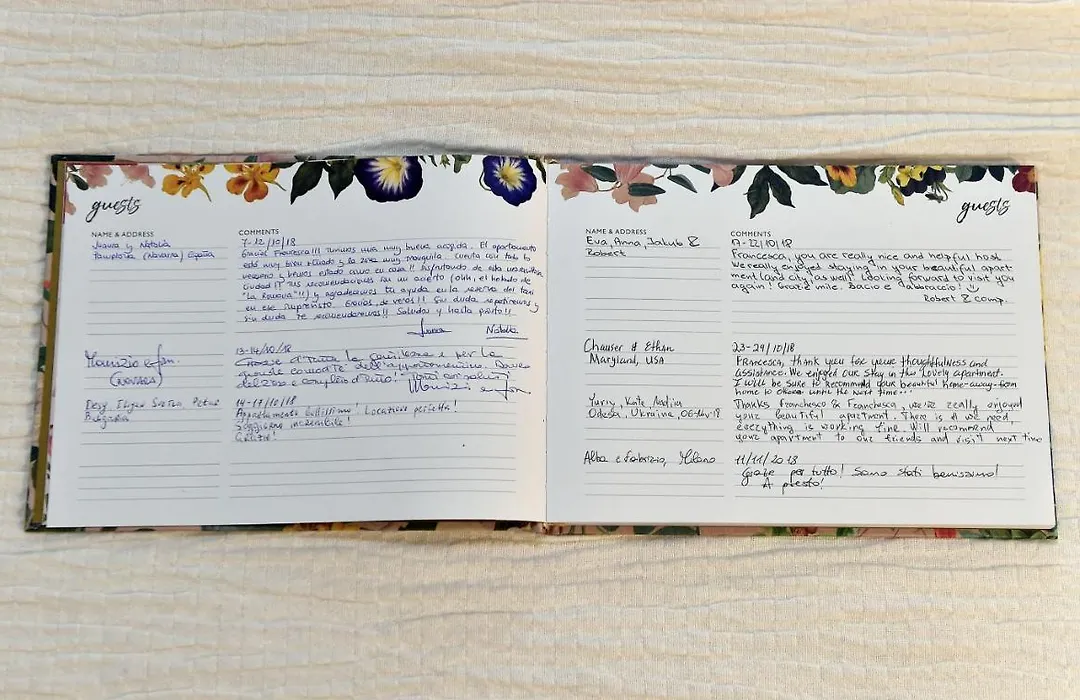 guests
NAME & ADDRESS
COMMENTS
Juana y Natalia
Pamplona (Navarra) España
7-12/10/18
Gracias Francesca!!! Tuvimos una muy buena acogida. El apartamento
está muy bien situado y la zona muy tranquila. cuenta con todo lo
y hemos estado como en casa!! de esta maravillosa
ciudad!! Tus recomendaciones son un acierto (ohh, el helado de
"La Romana"!!) y agradecemos tu ayuda en la reserva del taxi
en ese imprevisto. Gracias, de veras!! Sin duda repetiremos y
sin duda te recomendaremos!! Saludos y hasta pronto!!
Juana Natalia
Maurizio e
(NOVARA)
13-14/10/18
Grazie d'tutto la gentilezza e per la
grande comodità dell'appartamentino. Bravo
Maurizio e
Desy
Bulgaria
14-17/10/18
Appartamento bellissimo! Locazione perfetta!
Soggiorno incredibile!
Grazie!
guests
NAME & ADDRESS
COMMENTS
Eva, Anna, Jakub &
Robert
17-22/10/18
Francesca, you are really nice and helpful host
We really enjoyed staying in your beautiful apart-
ment (and city as well). Looking forward to visit you
again! Grazie mile. Bacio e abbraccio!
Robert & comp.
Chauser & Ethan
Maryland, USA
23-29/10/18
Francesca, thank you for your thoughtfulness and
assistance. We enjoyed our stay in this lovely apartment.
I will be sure to recommend your beautiful home-away-from
home to others until the next time...
Yuriy, Kate, Nadiia
Odesa, Ukraine, 06-Nov-18
Thanks Franchesco & Franchesca, we're really enjoyed
your beautiful apartment. There is all we need,
everything is working fine. Will recommend
your apartment to our friends and visit next time
Alba e Fabrizio, Milano
11/11/2018
Grazie per tutto! Sono stati benissimo!
A presto!